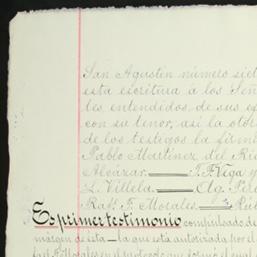 San Agustin número siet
esta escritura á los Señ
les entendidos de sus es
con su tenor, así la otor
de los testigos la firma
Pablo Martinez del Rio
Alcázar. J. F. Vega y
L. Villela. Ag. Pé
Raf. F. Morales.
Es primer testimonio compulsado de
márgen de ésta la que está autorizada por el